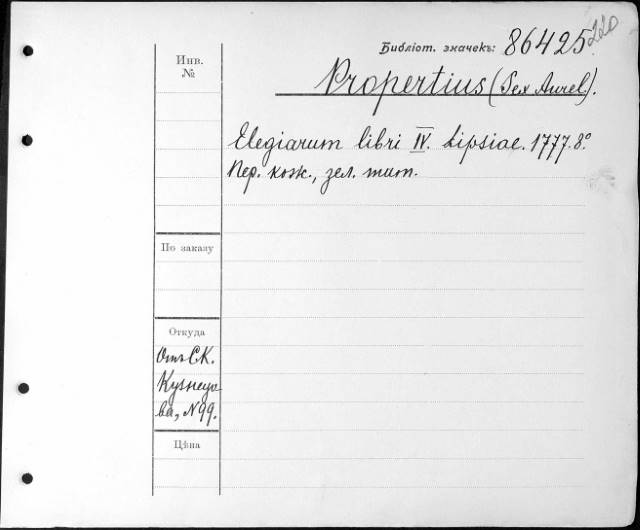 Библіот. значекъ: 86425
Инв.
№
Propertius (Sex Aurel.).
Elegiarum libri IV. Lipsiae. 1777. 8º
Пер. кож., зел. тит.
По заказу
Откуда
Отъ С.К.
Кузнецо-
ва, N 99.
Цѣна